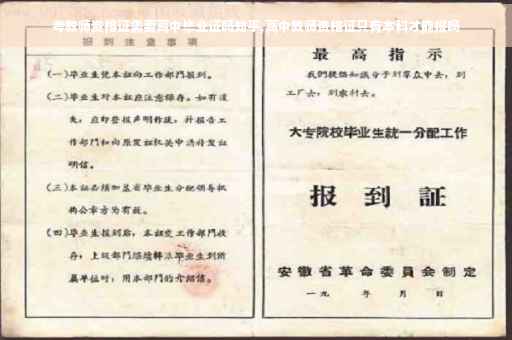 考教师资格证需要高中毕业证吗知乎,高中教师资格证只有本科才能报吗
报到注意事项
(一)毕业生凭本证向工作部门报到。
(二)毕业生对本证应注意保存。如有遗
失,应即登报声明作废,并报告工
作部门和向原发证机关申请补发证
明信。
(三)本证必须加盖省毕业生分配领导机
构公章方为有效。
(四)毕业生报到后,本证交工作部门收
存;上级部门继续转派毕业生到所
属单位时,用本部门的介绍信。
最高指示
我们提倡知识分子到群众中去,到
工厂去,到农村去。
大专院校毕业生統一分配工作
报到证
安徽省革命委員会制定
一九 年 月 日